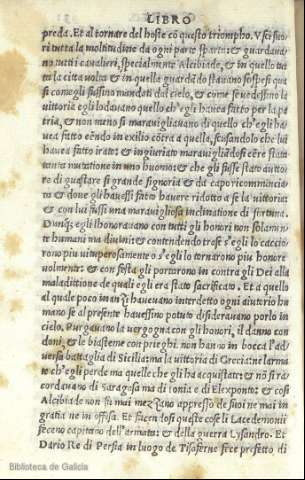 LIBRO
preda. Et al tornare del hoste cō questo triompho. Vsci fuo
ri tutta la moltitudine da ogni parte sparta: & guardaua
no tutti cavalieri, specialmente Alcibiade, & in quello tut
ta la cita volta & in quella guardādo stavano sospesi qua
si come gli fussino mandati dal cielo, & come se vedessino la
vittoria egli lodavano quello ch'egli havea fatto per la pa
tria, & non meno si maravigliavano di quello ch'egli ha
vea fatto eēndo in exilio cōtra a quella, scusandolo che lui
havea fatto irato: & ingiuriato maravigliādosi eēre stata
tanta mutatione in uno huomo: & che gli fusse stato autto
re di guastare si grande signoria & da capo ricomincia
to & dove gli havessi fatto havere ridotto a se la vittoria:
& con lui fussi una maravigliosa inclinatione di fortuna.
Dunq; egli honoravano con tutti gli honori non solamen
te humani ma divini: & contendendo tra se s'egli lo caccio
rono piu vituperosamente o s'egli lo tornarono piu honore
volmente: & con festa gli portorono in contra gli Dei alla
maladittione de quali egli era stato sacrificato. Et a quello
al quale poco inanzi havevano interdetto ogni aiutorio hu
mano se al presente havessino potuto disideravano porlo in
cielo. Purgavano la vergogna con gli honori, il danno con
doni, & le biasteme con prieghi. non hanno in bocca l'ad
versa battaglia di Sicilia: ma la vittoria di Grecia: ne l'arma
to ch'egli perde ma quelle che gli ha acquistate: & nō si ra
cordavano di Saragosa ma di Ionia e di Elexponto: & cosi
Alcibiade non fu mai mezzano appresso de suoi ne mai in
gratia ne in offesa. Et facendosi queste cose li Lacedemonii
feceno capitano dell'armata: & della guerra Lysandro. Et
Dario Re di Persia in luogo de Tisaferne fece prefetto di
Biblioteca de Galicia